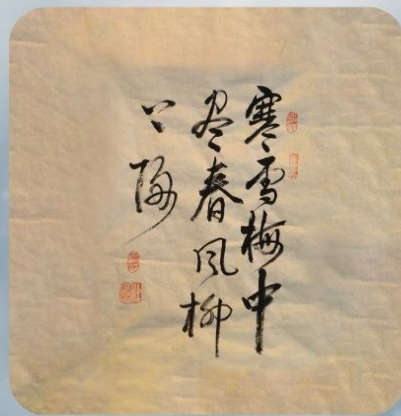 寒雪梅中
尽春风柳
上归